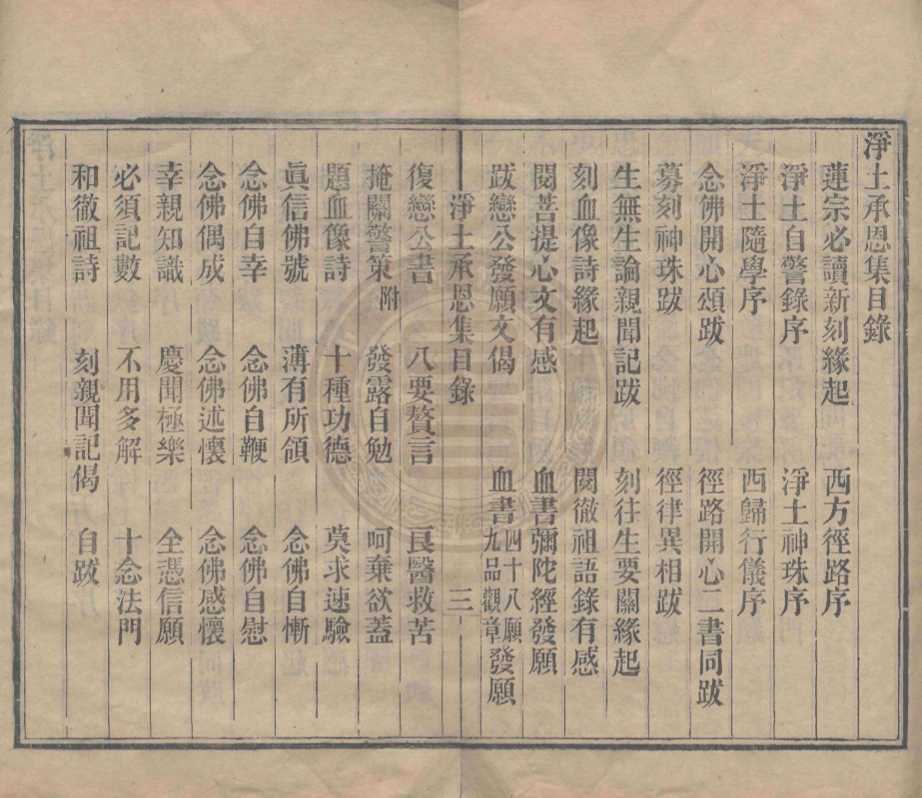 淨土承恩集目錄
蓮宗必讀新刻緣起 西方徑路序
淨土自警錄序 淨土神珠序
淨土隨學序 西歸行儀序
念佛開心頌跋 徑路開心二書同跋
募刻神珠跋 徑律異相跋
生無生論親聞記跋 刻往生要關緣起
刻血像詩緣起 閱徹祖語錄有感
閱菩提心文有感 血書彌陀經發願
跋戀公發願文偈 血書四十八願九品觀章發願
淨土承恩集目錄 三
復戀公書 八要贅言 良醫救苦
掩關警策附 發露自勉 呵棄欲蓋
題血像詩 十種功德 莫求速驗
眞信佛號 薄有所領 念佛自慚
念佛自幸 念佛自鞭 念佛自慰
念佛偶成 念佛述懷 念佛感懷
幸親知識 慶聞極樂 全憑信願
必須記數 不用多解 十念法門
和徹祖詩 刻親聞記偈 自跋